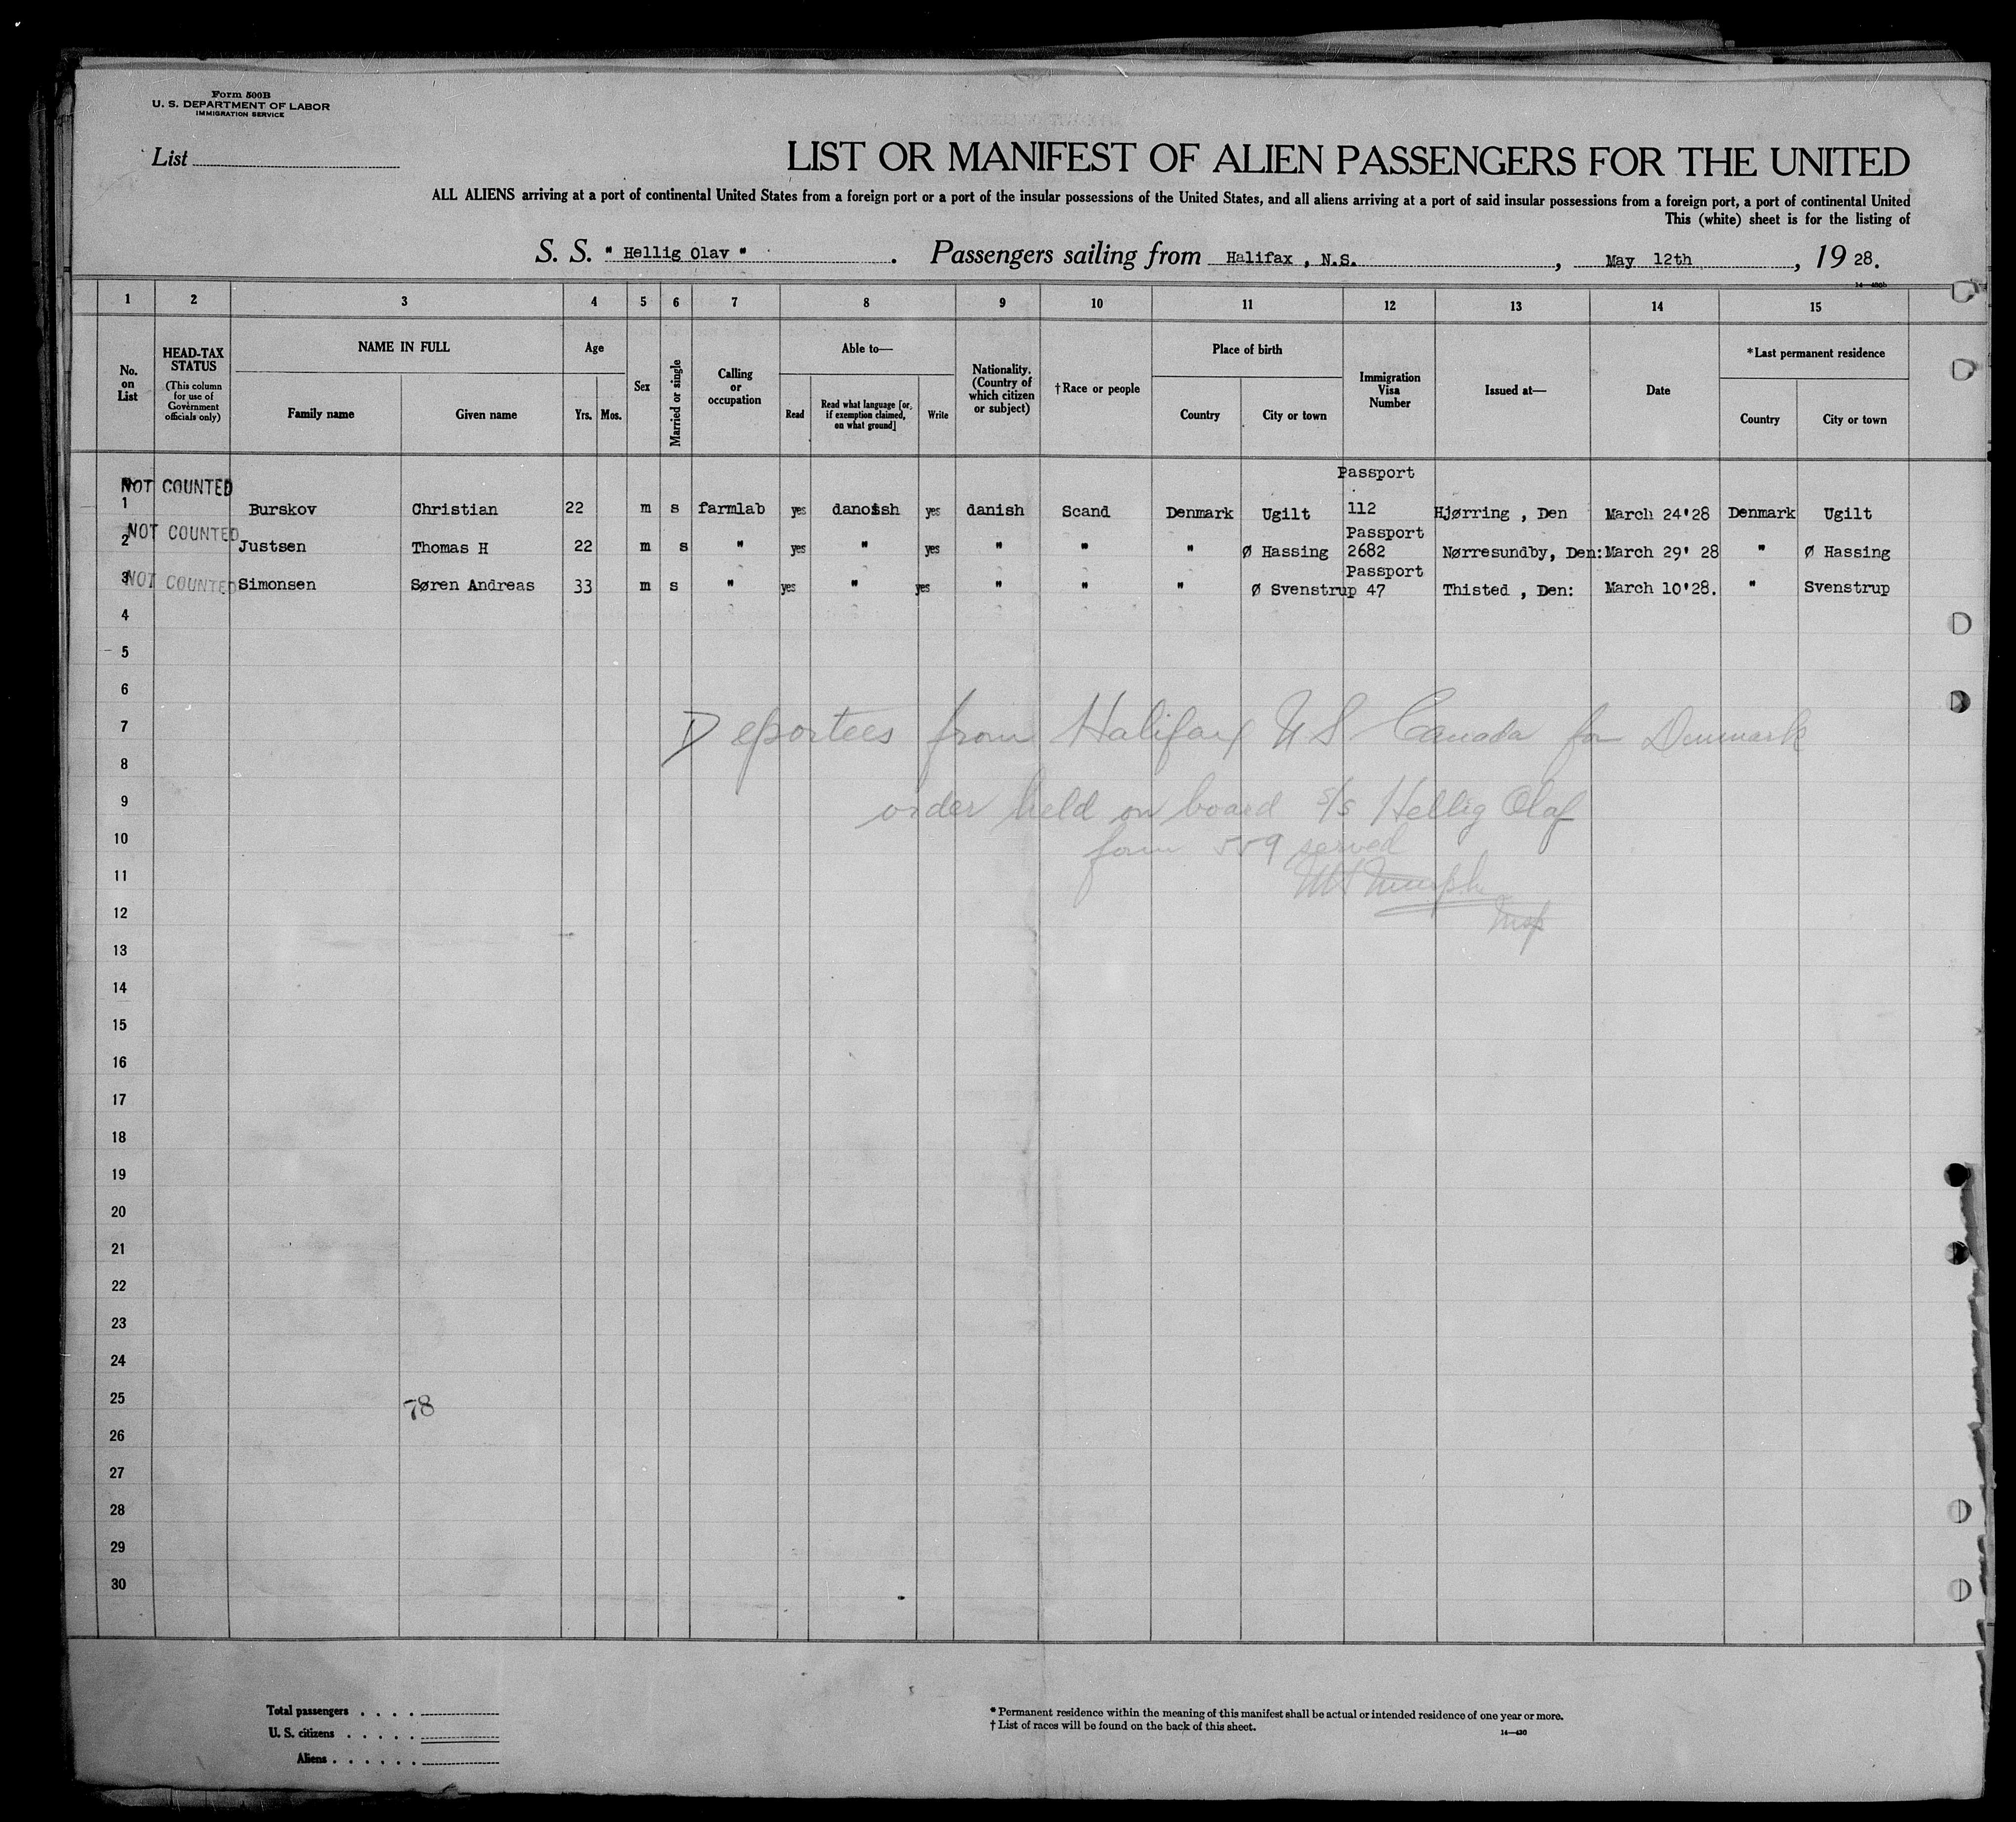 Form 500B
U. S. DEPARTMENT OF LABOR
IMMIGRATION SERVICE
List
LIST OR MANIFEST OF ALIEN PASSENGERS FOR THE UNITED
ALL ALIENS arriving at a port of continental United States from a foreign port or a port of the insular possessions of the United States, and all aliens arriving at a port of said insular possessions from a foreign port, a port of continental United
This (white) sheet is for the listing of
S. S. " Hellig Olav " . Passengers sailing from Halifax , N.S. , May 12th , 19 28.
14—430b
1 2 3 4 5 6 7 8 9 10 11 12 13 14 15
No. on List
HEAD-TAX STATUS
(This column for use of Government officials only)
NAME IN FULL
Family name
Given name
Age
Yrs. Mos.
Sex
Married or single
Calling or occupation
Able to—
Read
Read what language [or, if exemption claimed, on what ground]
Write
Nationality. (Country of which citizen or subject)
†Race or people
Place of birth
Country
City or town
Immigration Visa Number
Issued at—
Date
*Last permanent residence
Country
City or town
Passport
NOT COUNTED
1 Burskov Christian 22 m s farmlab yes danoish yes danish Scand Denmark Ugilt 112 Hjørring , Den March 24'28 Denmark Ugilt
NOT COUNTED Passport
2 Justsen Thomas H 22 m s " yes " yes " " " Ø Hassing 2682 Nørresundby, Den: March 29' 28 " Ø Hassing
Passport
3 NOT COUNTED Simonsen Søren Andreas 33 m s " yes " yes " " " Ø Svenstrup 47 Thisted , Den: March 10'28. " Svenstrup
4
5
6
7 Deportees from Halifax N S Canada for Denmark
8
9 order held on board s/s Hellig Olaf
10 form 559 served
11
12
13
14
15
16
17
18
19
20
21
22
23
24
25 78
26
27
28
29
30
Total passengers . . . .
U. S. citizens . . . . .
Aliens . . . . . .
* Permanent residence within the meaning of this manifest shall be actual or intended residence of one year or more.
† List of races will be found on the back of this sheet.
14—430